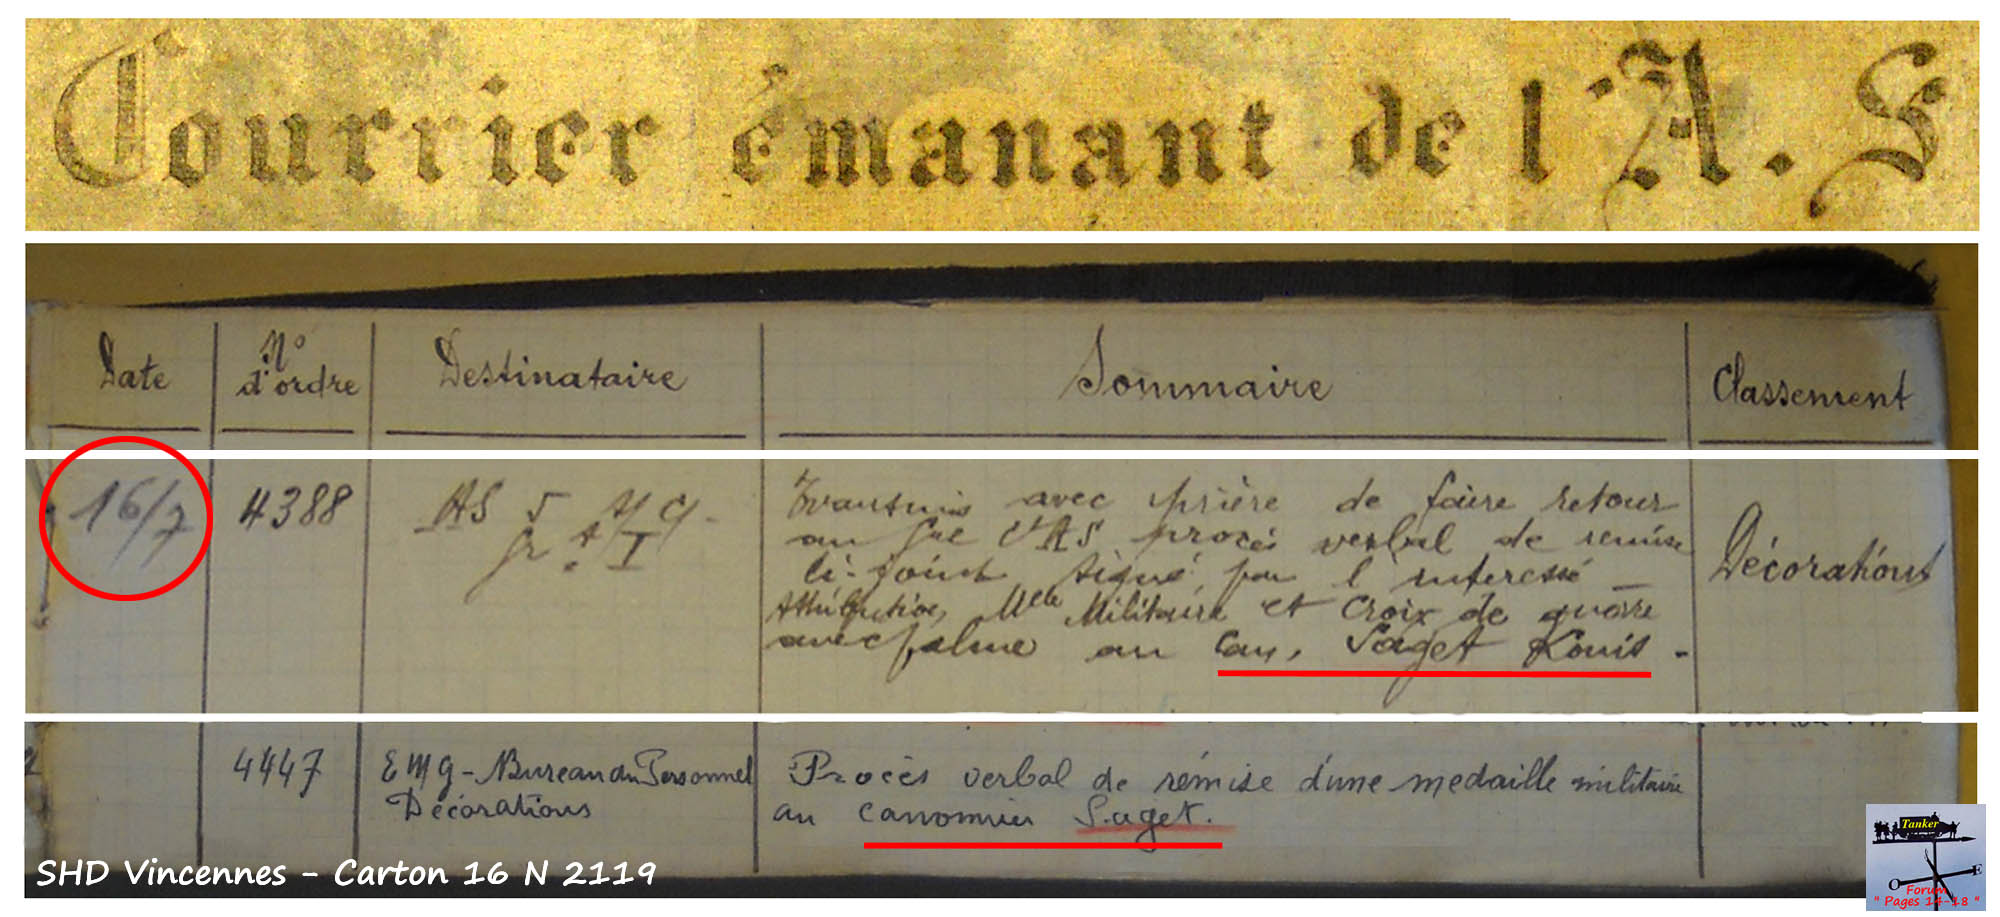 Courrier émanant de l'A.S
Date
N°
d'ordre
Destinataire
Sommaire
Classement
16/7
4388
AS
Transmis avec prière de faire retour
au Gal l'AS procès verbal de remise
ci-joint signé par l'interessé
Attribution, Mlle Militaire et Croix de guerre
avec palme au Can, Saget Louis -
Décorations
4447
EMG - Bureau du Personnel
Décorations
Procès verbal de rémise d'une medaille militaire
au canonnier Saget.
SHD Vincennes - Carton 16 N 2119
Tanker
O E
Forum
" Pages 14-18 "